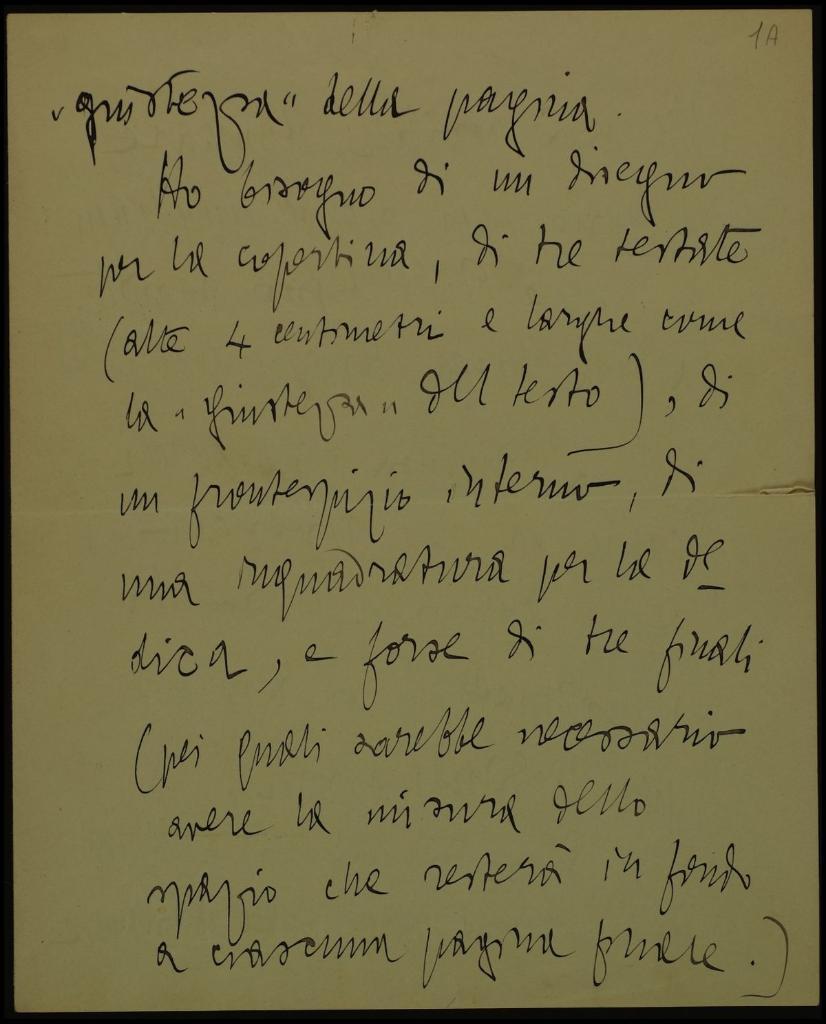 1A
„giustezza“ della pagina.
Ho bisogno di un disegno
per la copertina, di tre testate
(alte 4 centimetri e larghe come
la „giustezza“ del testo), di
un frontespizio interno, di
una inquadratura per la de
dica, e forse di tre finali
(pei quali sarebbe necessario
avere la misura dello
spazio che resterà in fondo
a ciascuna pagina finale.)